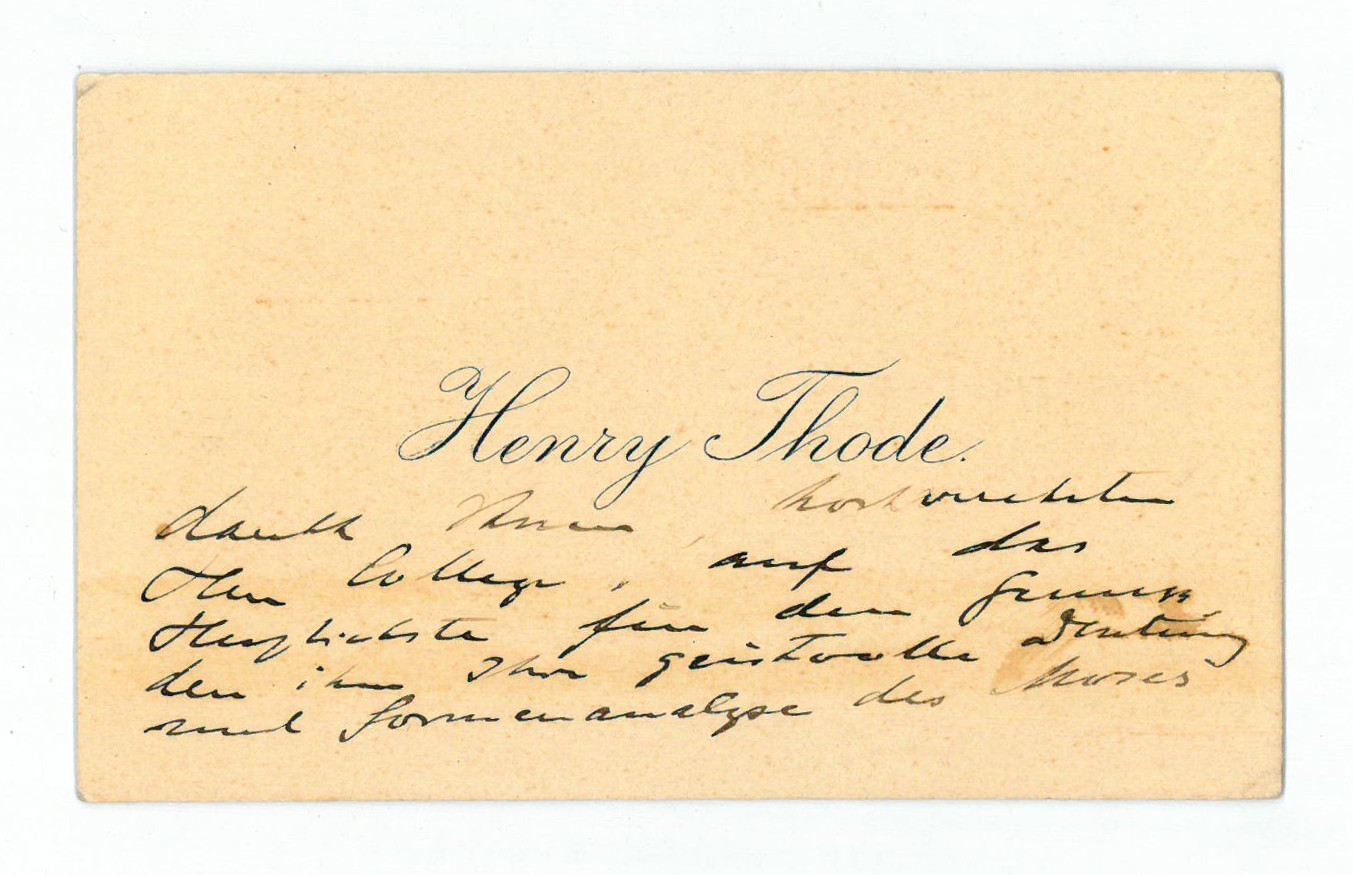 Henry Thode.
dankt Ihnen, hochverehrter
Herr College, auf das
Herzlichste für den Genuss,
den ihm Ihre geistvolle Deutung
und Formenanalyse des Moses